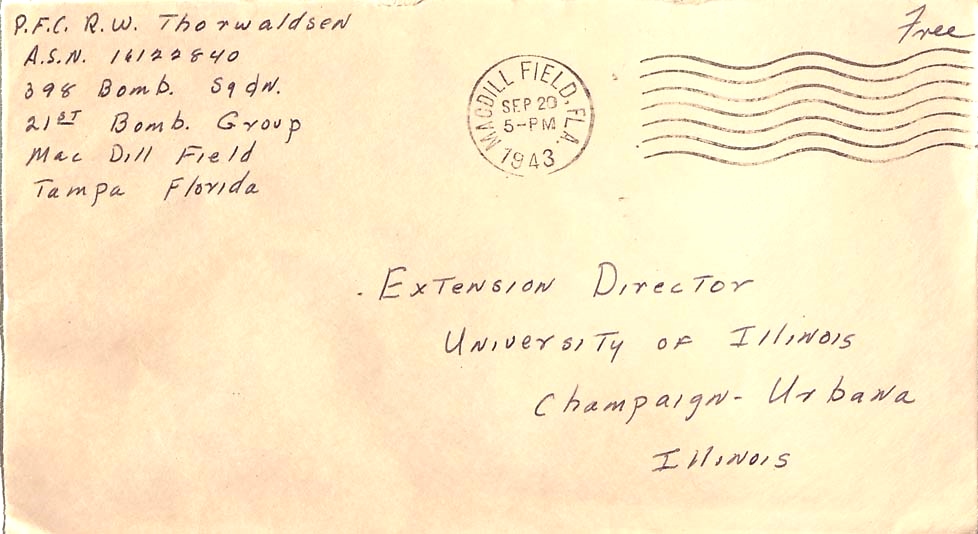 P.F.C. R.W. Thorwaldsen
A.S.N. 16122840
398 Bomb. Sqdn.
21ST Bomb. Group
Mac Dill Field
Tampa Florida
MACDILL FIELD, FLA.
SEP 20
5-PM
1943
Free
Extension Director
University of Illinois
Champaign-Urbana
Illinois